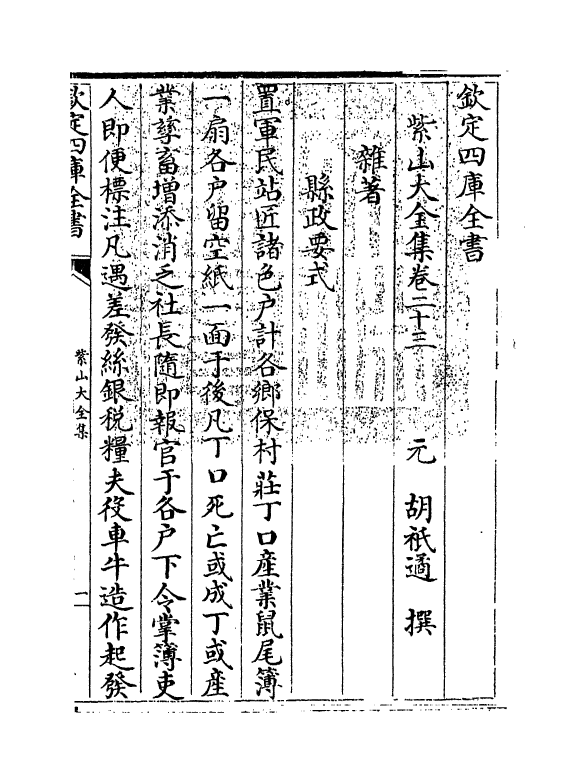 欽定四庫全書
紫山大全集卷二十三
元 胡祗遹 撰
雜著
縣政要式
置軍民站匠諸色户計各鄉保村莊丁口産業鼠尾簿
一扇各户留空紙一面于後凡丁口死亡或成丁或産
業孳畜増添消乏社長隨即報官于各户下令掌簿吏
人即便標注凡遇差發絲銀税糧夫役車牛造作起發
欽定四庫全書
紫山大全集